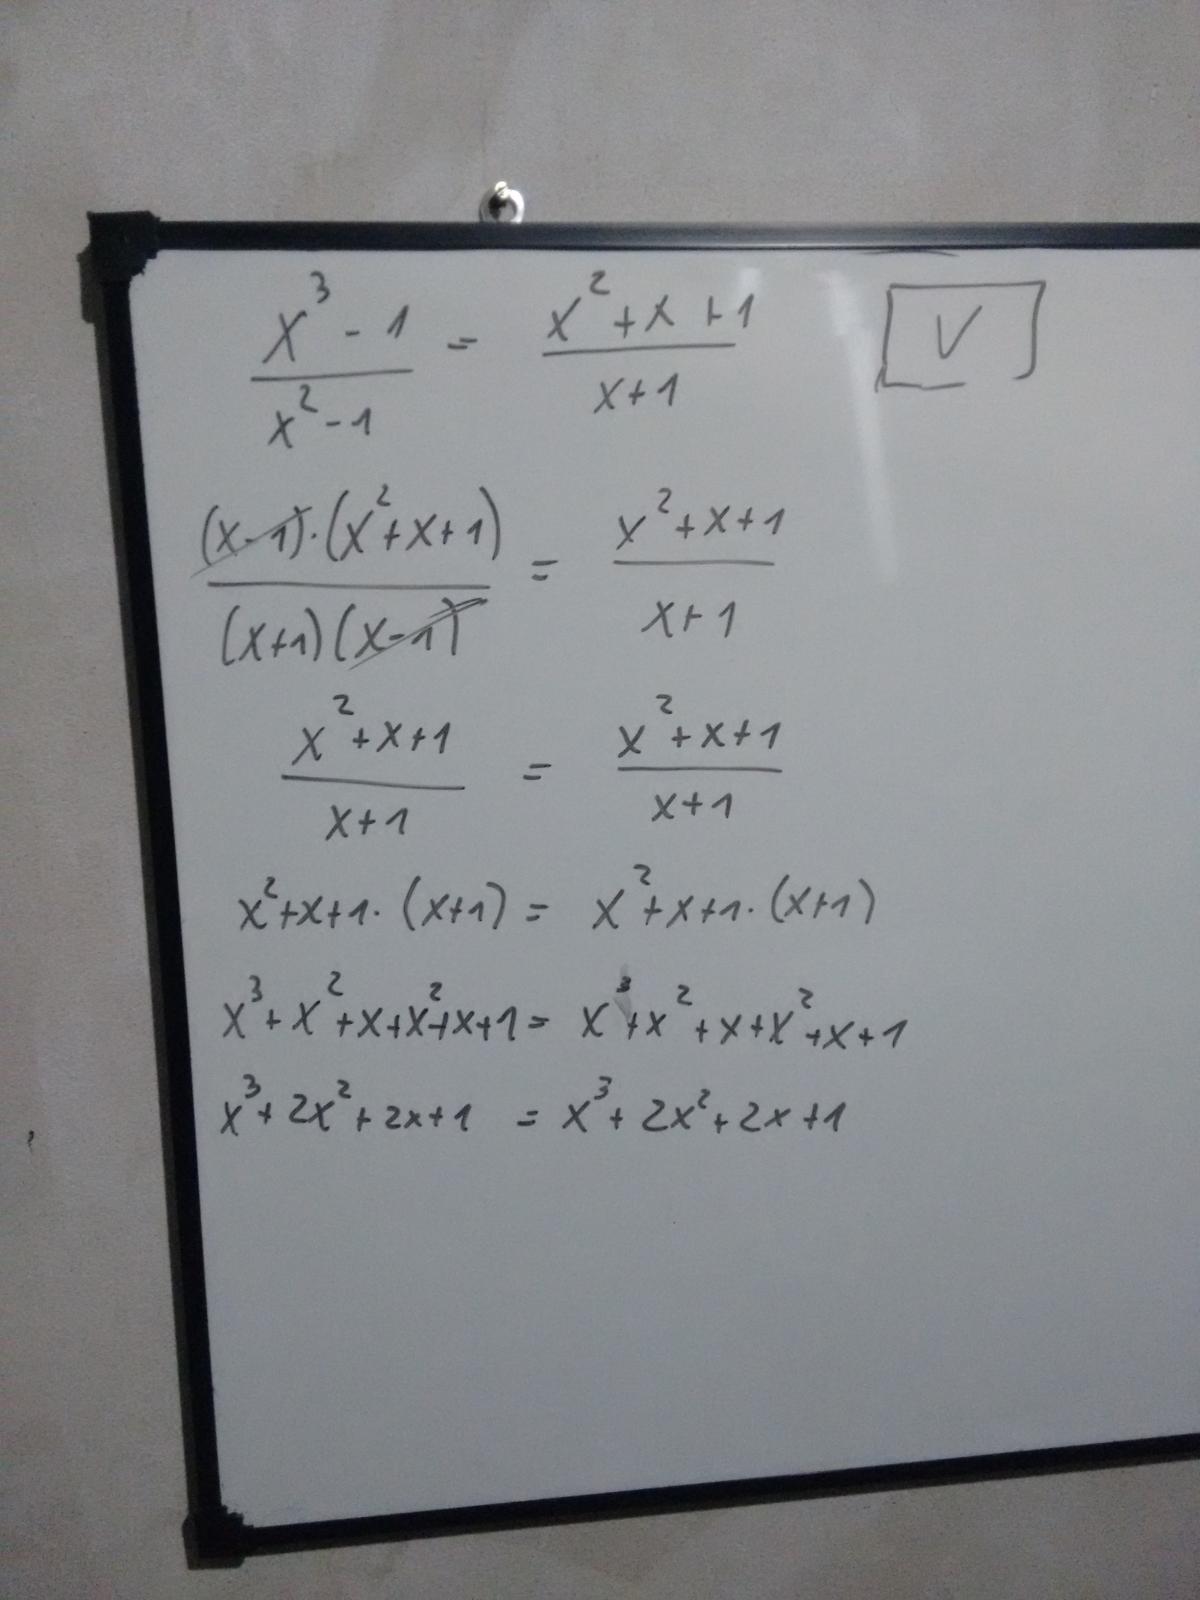 x³ - 1 / x² - 1 = x² + x + 1 / x + 1 V
(x - 1) · (x² + x + 1) / (x + 1)(x - 1) = x² + x + 1 / x + 1
x² + x + 1 / x + 1 = x² + x + 1 / x + 1
x² + x + 1 · (x + 1) = x² + x + 1 · (x + 1)
x³ + x² + x + x² + x + 1 = x³ + x² + x + x² + x + 1
x³ + 2x² + 2x + 1 = x³ + 2x² + 2x + 1